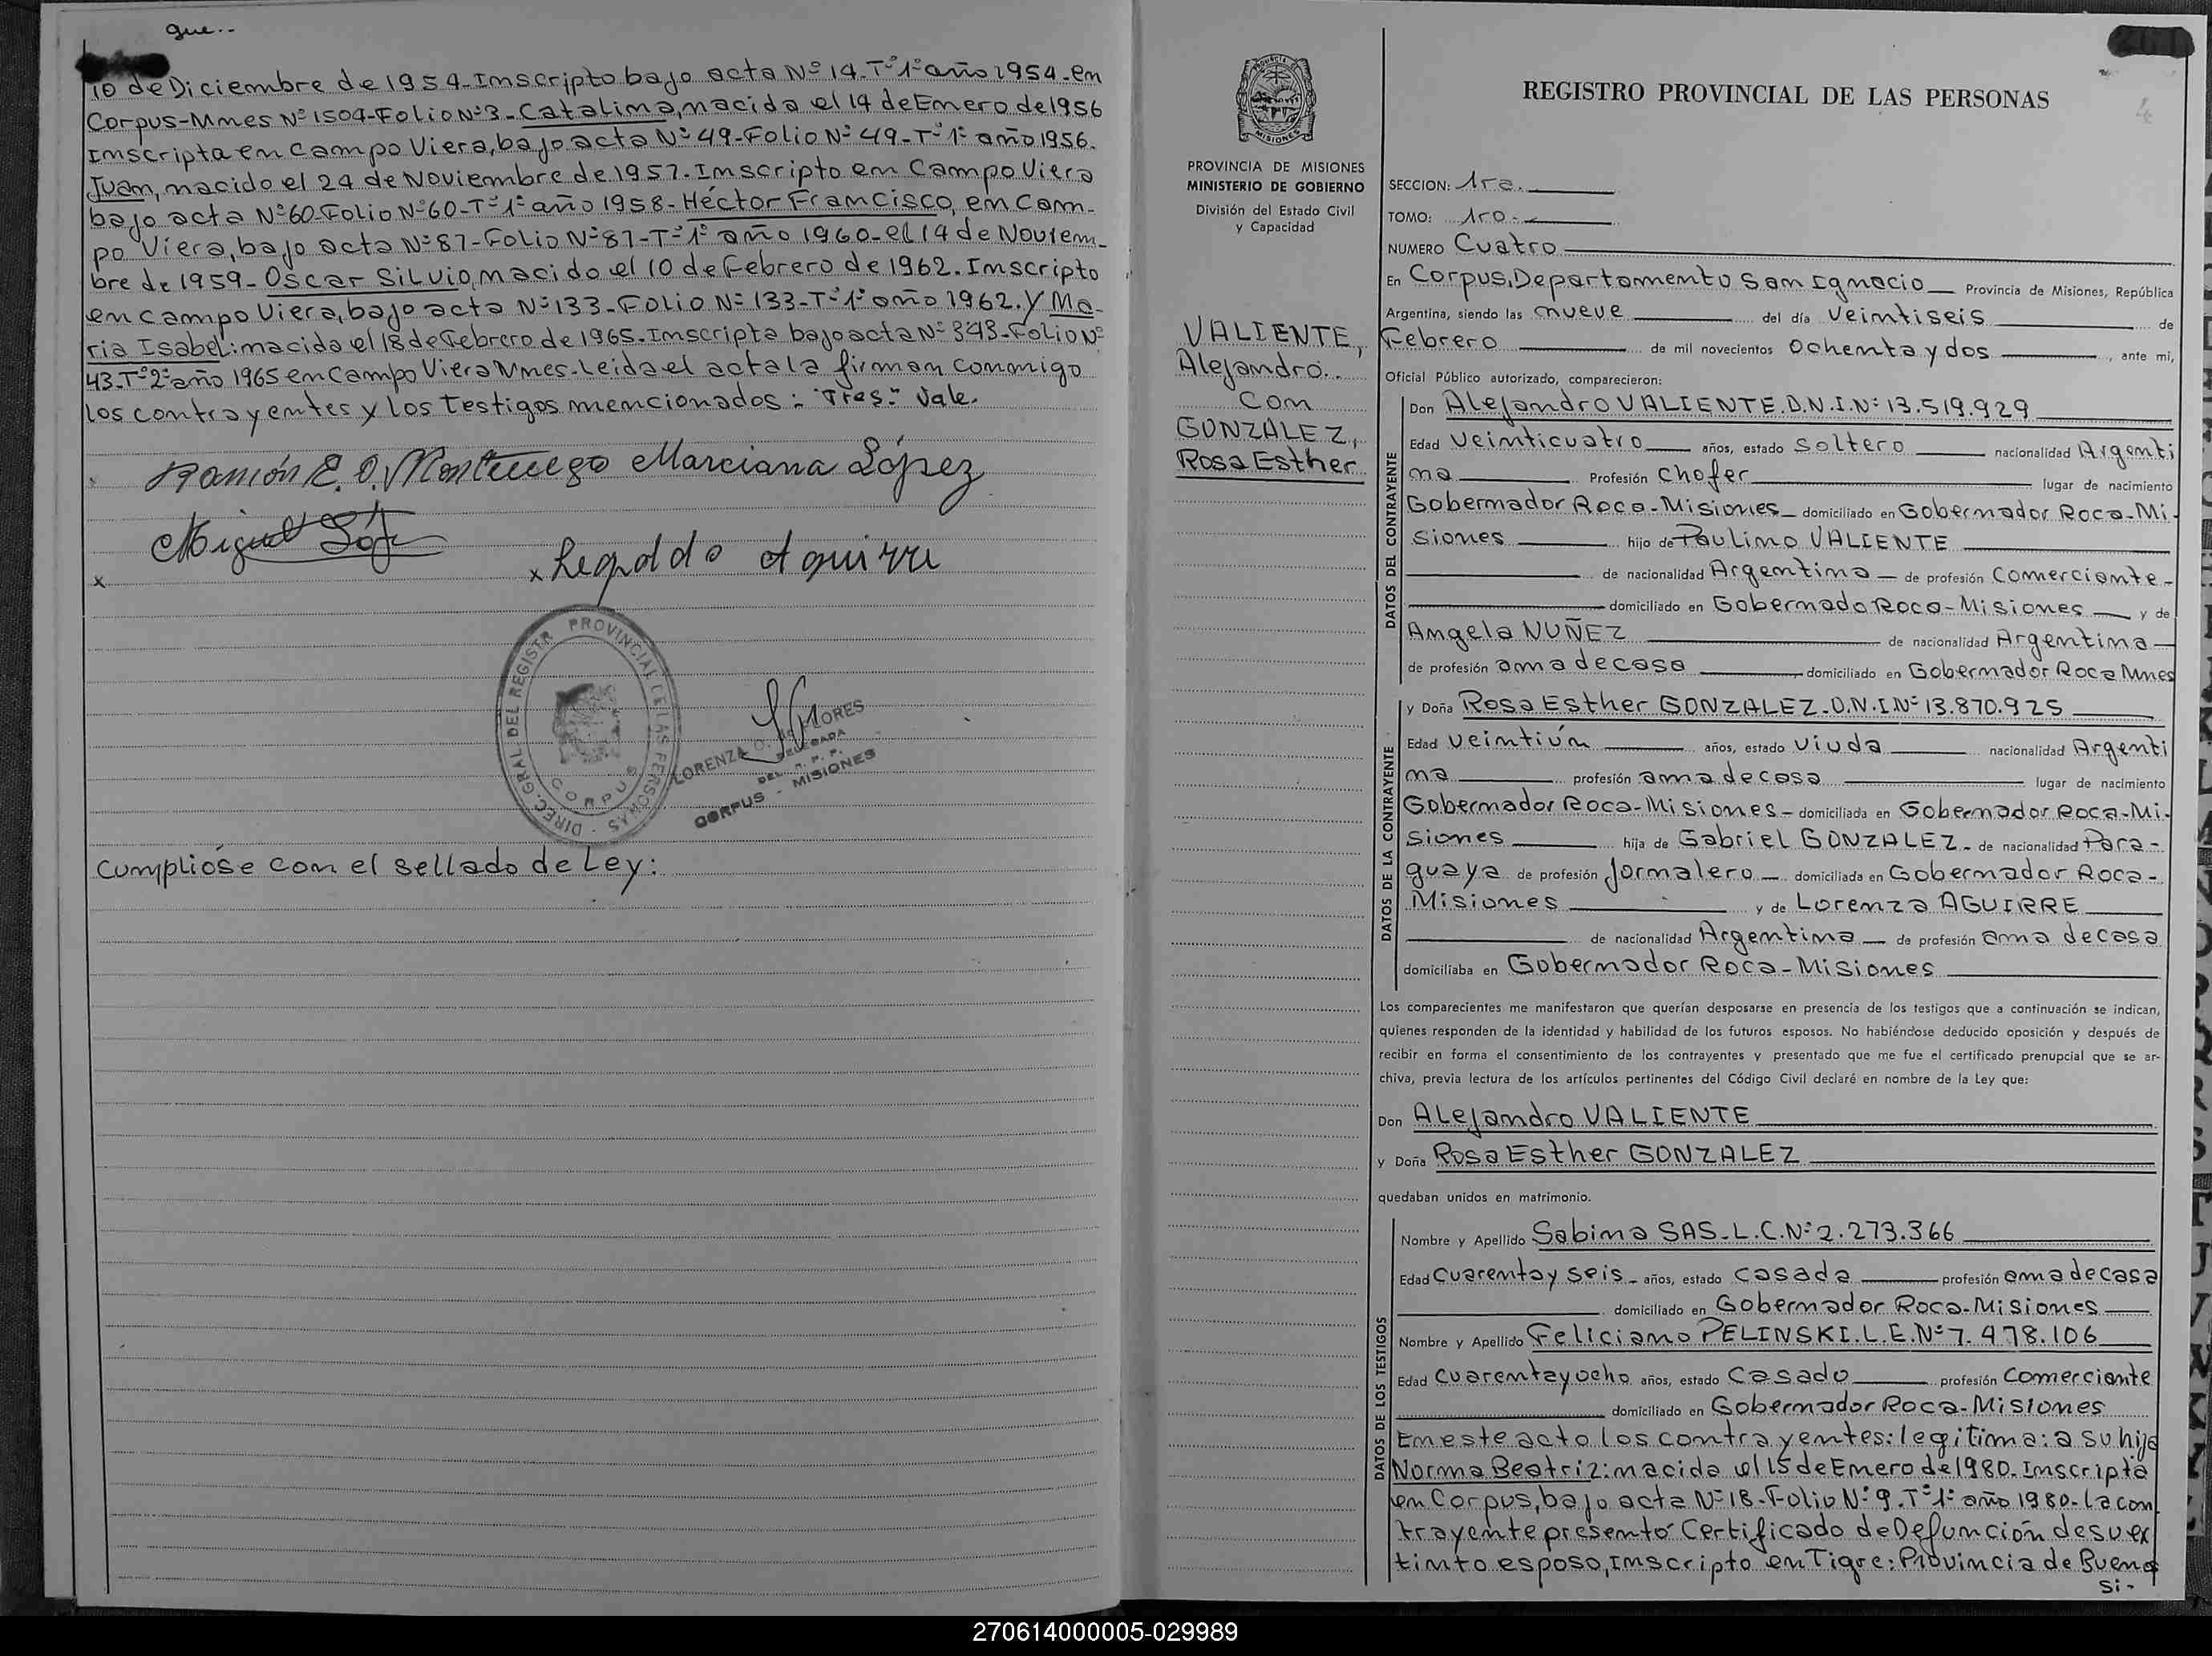 que--
10 de Diciembre de 1954. Inscripto bajo acta Nº 14-Tº 1º año 1954-en
Corpus-Mnes Nº 1504-Folio Nº 3-Catalina, nacida el 14 de Enero de 1956
Inscripta en Campo Viera, bajo acta Nº 49-Folio Nº 49-Tº 1º año 1956.
Juan, nacido el 24 de Noviembre de 1957. Inscripto en Campo Viera
bajo acta Nº 60-Folio Nº 60-Tº 1º año 1958-Héctor Francisco, en Cam-
po Viera, bajo acta Nº 87-Folio Nº 87-Tº 1º año 1960-el 14 de Noviem-
bre de 1959-Oscar Silvio, nacido el 10 de Febrero de 1962. Inscripto
en Campo Viera, bajo acta Nº 133-Folio Nº 133-Tº 1º año 1962. Y Ma-
ria Isabel: nacida el 18 de Febrero de 1965. Inscripta bajo acta Nº 343-Folio Nº
43-Tº 2º año 1965 en Campo Viera Mnes-Leida el acta la firman conmigo
los contrayentes y los testigos mencionados: "Tres": Vale.
Ramón E. O. Montenegro Marciana López
Miguel
x Leopoldo Aguirre
x
DIREC. GRAL. DEL REGISTR PROVINCIAL DE LAS PERSONAS
CORPUS
LORENZA
DELEGADA
DEL R. P. P.
CORPUS - MISIONES
Cumplióse con el sellado de Ley:
PROVINCIA DE
MISIONES
PROVINCIA DE MISIONES
MINISTERIO DE GOBIERNO
División del Estado Civil
y Capacidad
VALIENTE,
Alejandro..
Con
GONZALEZ,
Rosa Esther
REGISTRO PROVINCIAL DE LAS PERSONAS
4
SECCION: 1ra.
TOMO: 1ro-
NUMERO Cuatro
En Corpus, Departamento San Ignacio Provincia de Misiones, República
Argentina, siendo las nueve del día Veintiseis de
Febrero de mil novecientos Ochenta y dos, ante mí,
Oficial Público autorizado, comparecieron:
DATOS DEL CONTRAYENTE
Don Alejandro VALIENTE. D.N.I. Nº 13.519.929
Edad Veinticuatro años, estado Soltero nacionalidad Argenti
na Profesión Chofer lugar de nacimiento
Gobernador Roca-Misiones domiciliado en Gobernador Roca-Mi-
siones hijo de Paulino VALIENTE
de nacionalidad Argentina de profesión Comerciante-
domiciliado en Gobernado Roca-Misiones y de
Angela NUÑEZ de nacionalidad Argentina
de profesión ama de casa domiciliado en Gobernador Roca Mnes
DATOS DE LA CONTRAYENTE
y Doña Rosa Esther GONZALEZ-D.N.I. Nº 13.870.925
Edad Veintiún años, estado Viuda nacionalidad Argenti
na profesión ama de casa lugar de nacimiento
Gobernador Roca-Misiones- domiciliada en Gobernador Roca-Mi-
siones hija de Gabriel GONZALEZ- de nacionalidad Para-
guaya de profesión Jornalero domiciliada en Gobernador Roca-
Misiones y de Lorenza AGUIRRE
de nacionalidad Argentina de profesión ama de casa
domiciliaba en Gobernador Roca-Misiones
Los comparecientes me manifestaron que querían desposarse en presencia de los testigos que a continuación se indican,
quienes responden de la identidad y habilidad de los futuros esposos. No habiéndose deducido oposición y después de
recibir en forma el consentimiento de los contrayentes y presentado que me fue el certificado prenupcial que se ar-
chiva, previa lectura de los artículos pertinentes del Código Civil declaré en nombre de la Ley que:
Don Alejandro VALIENTE
y Doña Rosa Esther GONZALEZ
quedaban unidos en matrimonio.
DATOS DE LOS TESTIGOS
Nombre y Apellido Sabina SAS-L.C. Nº 2.273.366
Edad Cuarenta y seis- años, estado casada profesión ama de casa
domiciliado en Gobernador Roca-Misiones
Nombre y Apellido Feliciano PELINSKI. L.E. Nº 7.478.106
Edad Cuarenta y ocho años, estado Casado profesión Comerciante
domiciliado en Gobernador Roca-Misiones
En este acto los contrayentes: legitima: a su hija
Norma Beatriz: nacida el 15 de Enero de 1980. Inscripta
en Corpus, bajo acta Nº 18-Folio Nº 9. Tº 1º año 1980-la con
trayente presentó Certificado de Defunción de su ex
tinto esposo, Inscripto en Tigre: Provincia de Bueno
si-
270614000005-029989